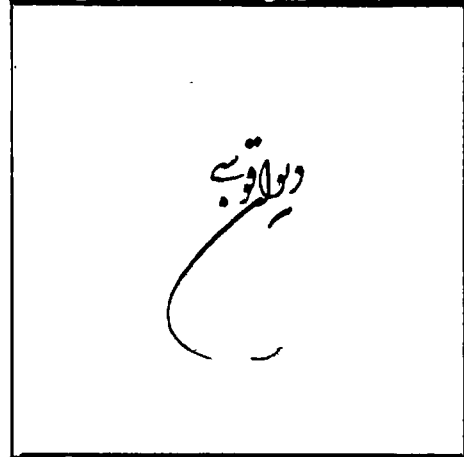 دیوان قوسی